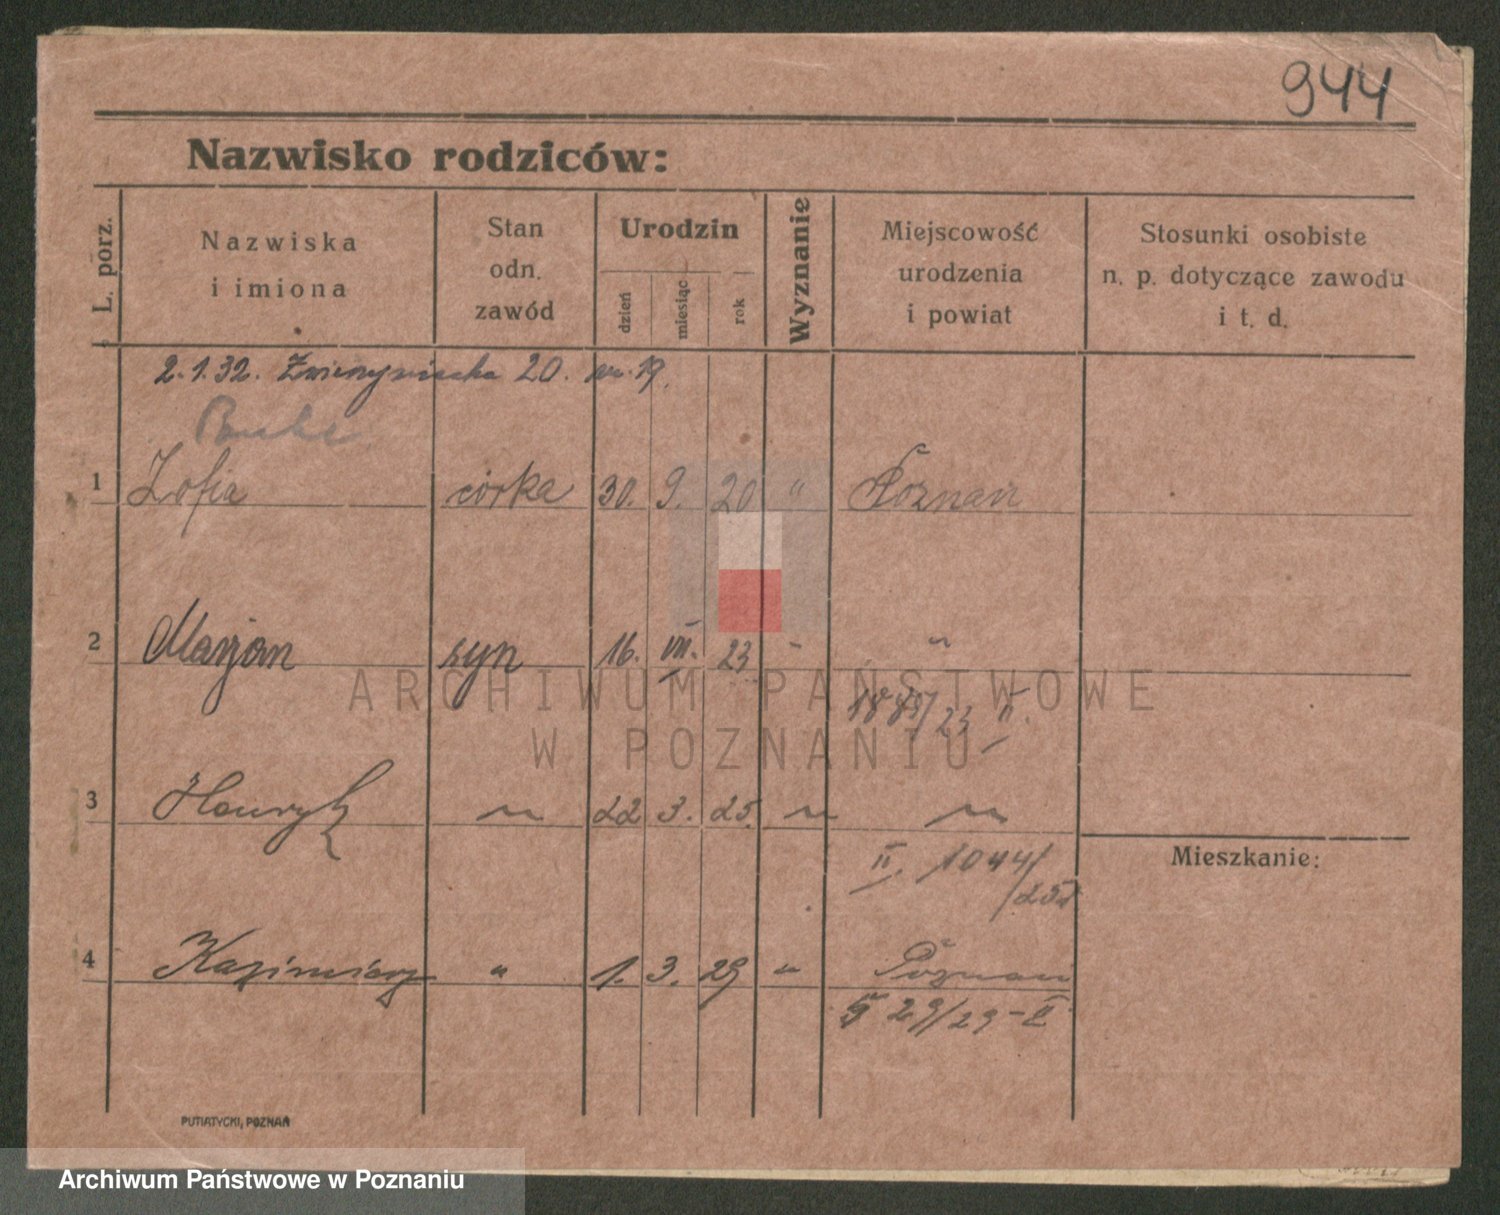 944
Nazwisko rodziców:
L. porz.
Nazwiska
i imiona
Stan
odn.
zawód
Urodzin
dzień
miesiąc
rok
Wyznanie
Miejscowość
urodzenia
i powiat
Stosunki osobiste
n. p. dotyczące zawodu
i t. d.
2.1.32. Zwierzyniecka 20. m. 19.
1 Zofia córka 30. 9. 20 " Poznań
2 Marjan syn 16. VII. 23 " "
/23 II.
3 Henryk " 22 3. 25 " "
II. 1044/25
Mieszkanie:
4 Kazimierz " 1. 3. 29 " Poznań
529/29-II
PUTIATYCKI, POZNAŃ
ARCHIWUM PAŃSTWOWE
W POZNANIU
Archiwum Państwowe w Poznaniu